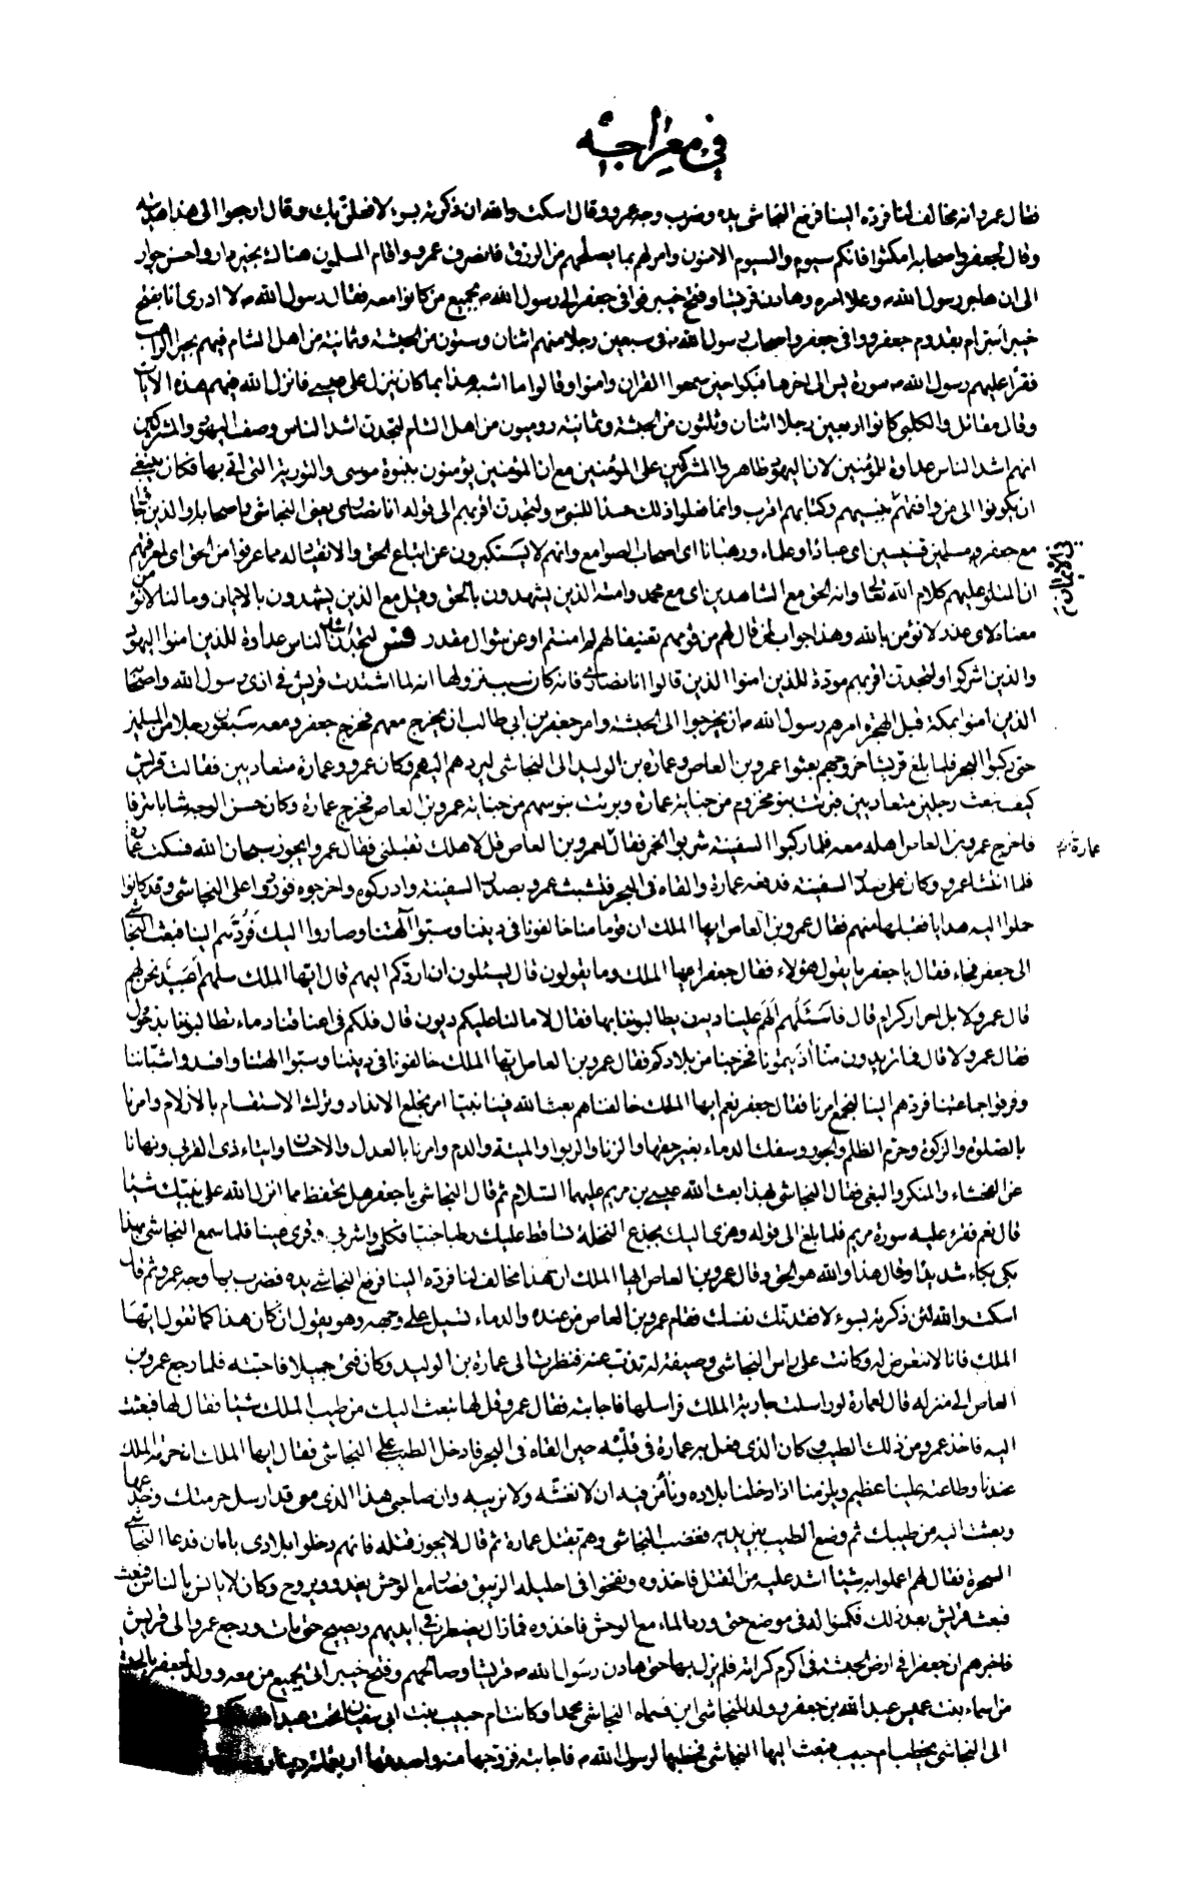 في معير الحبشه
فقال عمرو انه مخالف لنا فرده الينا فرفع النجاشي يده وضرب وجه عمرو وقال اسكت والله ان ذكرته بسوء لافعلن بك وقال ارجعوا الى هذا هديته
وقال لجعفر واصحابه امكثوا فانكم سيوم والسيوم الامنون وامر لهم بما يصلحهم من الرزق فانصرف عمرو واقام المسلمون هناك بخير دار واحسن جوار
الى ان هاجر رسول الله ص وعلا امره وهادن قريشا وفتح خيبر فوافى جعفر الى رسول الله ص بجميع من كانوا معه فقال رسول الله ص لا ادرى انا بفتح
خيبر اسر ام بقدوم جعفر ووافى جعفر واصحابه رسول الله ص في سبعين رجلا منهم اثنان وستون من الحبشة وثمانية من اهل الشام فيهم بحيرا الراهب
فقرأ عليهم رسول الله ص سورة يس الى اخرها فبكوا حين سمعوا القران وامنوا وقالوا ما اشبه هذا بما كان ينزل على عيسى فانزل الله فيهم هذه الايات
وقال مقاتل والكلبي كانوا اربعين رجلا اثنان وثلثون من الحبشة وثمانية روميون من اهل الشام لتجدن اشد الناس وصف اليهود والمشركين
انهم اشد الناس عداوة للمؤمنين لان اليهود ظاهروا المشركين على المؤمنين مع ان المؤمنين يؤمنون بنبوة موسى والتورية التي اتى بها فكان ينبغي
ان يكونوا الى من وافقهم بنبيهم وكتابهم اقرب وانما فعلوا ذلك حسدا للنبي ص ولتجدن اقربهم الى قوله انا نصارى يعني النجاشي واصحابه والذين جاؤا
مع جعفر مسلمين قسيسين اي عبادا وعلماء ورهبانا اي اصحاب الصوامع وانهم لا يستكبرون عن اتباع الحق والانقياد له مما عرفوا من الحق اي لمعرفتهم
ان المتلو عليهم كلام الله تعالى وانه الحق مع الشاهدين اي مع محمد وامته الذين يشهدون بالحق وقيل مع الذين يشهدون بالايمان وما لنا لا نؤمن
معناه لاي عذر لا نؤمن بالله وهذا جواب لمن قال لهم من قومهم تعنيفا لهم لم امنتم او عن سؤال مقدر فس لتجدن اشد الناس عداوة للذين امنوا اليهود
والذين اشركوا ولتجدن اقربهم مودة للذين امنوا الذين قالوا انا نصارى فانه كان سبب نزولها انه لما اشتدت قريش في اذى رسول الله واصحابه
الذين امنوا بمكة قبل الهجرة امرهم رسول الله ص ان يخرجوا الى الحبشة وامر جعفر بن ابي طالب ان يخرج معهم فخرج جعفر ومعه سبعون رجلا من المسلمين
حتى ركبوا البحر فلما بلغ قريشا خروجهم بعثوا عمرو بن العاص وعمارة بن الوليد الى النجاشي ليردهم اليهم وكان عمرو وعمارة متعاديين فقالت قريش
كيف نبعث رجلين متعاديين فبرئت بنو مخزوم من جناية عمارة وبرئت بنو سهم من جناية عمرو بن العاص فخرج عمارة وكان حسن الوجه شابا مترفا
فاخرج عمرو بن العاص اهله معه فلما ركبوا السفينة شربوا الخمر فقال لعمرو بن العاص قل لاهلك تقبلني فقال عمرو ايجوز سبحان الله فسكت عمارة
عمارة م
فلما انتشا عمرو وكان على صدر السفينة فدفعه عمارة والقاه في البحر فتشبث عمرو بصدر السفينة وادركوه واخرجوه فوردوا على النجاشي وقد كانوا
حملوا اليه هدايا فقبلها منهم فقال عمرو بن العاص ايها الملك ان قوما منا خالفونا في ديننا وسبوا الهتنا وصاروا اليك فردهم الينا فبعث النجاشي
الى جعفر فجاء فقال يا جعفر ما يقول هؤلاء فقال جعفر ايها الملك وما يقولون قال يسئلون ان اردكم اليهم قال ايها الملك سلهم اعبيد نحن لهم
قال عمرو لا بل احرار كرام قال فاسئلهم الهم علينا ديون يطالبوننا بها فقال لا ما لنا عليكم ديون قال فلكم في اعناقنا دماء تطالبوننا بذحول
فقال عمرو لا قال فما تريدون منا اذيتمونا فخرجنا من بلادكم فقال عمرو بن العاص ايها الملك خالفونا في ديننا وسبوا الهتنا وافسدوا شبابنا
وفرقوا جماعتنا فردهم الينا لنجمع امرنا فقال جعفر نعم ايها الملك خالفناهم بعث الله فينا نبيا امر بخلع الانداد وترك الاستقسام بالازلام وامرنا
بالصلوة والزكوة وحرم الظلم والجور وسفك الدماء بغير حقها والزنا والربوا والميتة والدم وامرنا بالعدل والاحسان وايتاء ذى القربى ونهانا
عن الفحشاء والمنكر والبغي فقال النجاشي بهذا بعث الله عيسى بن مريم عليهما السلام ثم قال النجاشي يا جعفر هل تحفظ مما انزل الله على نبيك شيئا
قال نعم فقرء عليه سورة مريم فلما بلغ الى قوله وهزى اليك بجذع النخلة تساقط عليك رطبا جنيا فكلي واشربي وقرى عينا فلما سمع النجاشي بهذا
بكى بكاء شديدا وقال هذا والله هو الحق وقال عمرو بن العاص ايها الملك ان هذا مخالف لنا فرده الينا فرفع النجاشي يده فضرب بها وجه عمرو ثم قال
اسكت والله لئن ذكرته بسوء لافقدنك نفسك فقام عمرو بن العاص من عنده والدماء تسيل على وجهه وهو يقول ان كان هذا كما تقول ايها
الملك فانا لا نتعرض له وكانت على راس النجاشي وصيفة له تذب عنه فنظرت الى عمارة بن الوليد وكان فتى جميلا فاحبته فلما رجع عمرو بن
العاص الى منزله قال لعمارة لو راسلت جارية الملك فراسلها فاجابته فقال عمرو قل لها تبعث اليك من طيب الملك شيئا فقال لها فبعثت
اليه فاخذ عمرو من ذلك الطيب وكان الذى فعل به عمارة في قلبه حين القاه في البحر فادخل الطيب على النجاشي فقال ايها الملك ان حرمة الملك
عندنا وطاعته علينا عظيم ويلزمنا اذا دخلنا بلاده ونأمن فيه ان لا نغشه ولا نريبه وان صاحبي هذا الذى معى قد ارسل حرمتك وخدعها
وبعثت اليه من طيبك ثم وضع الطيب بين يديه فغضب النجاشي وهم بقتل عمارة ثم قال لا يجوز قتله فانهم دخلوا بلادى بامان فدعا النجاشي
السحرة فقال لهم اعملوا به شيئا اشد عليه من القتل فاخذوه ونفخوا في احليله الزيبق فصار مع الوحش يغدو ويروح وكان لا يانس بالناس فبعث
فبعث قريش بعد ذلك فكمنوا له في موضع حتى ورد الماء مع الوحش فاخذوه فمازال يضطرب في ايديهم ويصيح حتى مات ورجع عمرو الى قريش
فاخبرهم ان جعفرا في ارض الحبشة في اكرم كرامة فلم يزل بها حتى هادن رسول الله ص قريشا وصالحهم وفتح خيبر اتى بجميع من معه وولد لجعفر بالحبشة
من اسماء بنت عميس عبد الله بن جعفر وولد للنجاشي ابن فسماه النجاشي محمدا وكانت ام حبيب بنت ابي سفيان تحت عبد الله
الى النجاشي يخطب ام حبيب فبعث اليها النجاشي فخطبها لرسول الله ص فاجابته فزوجها منه واصدقها اربعمائة دينار